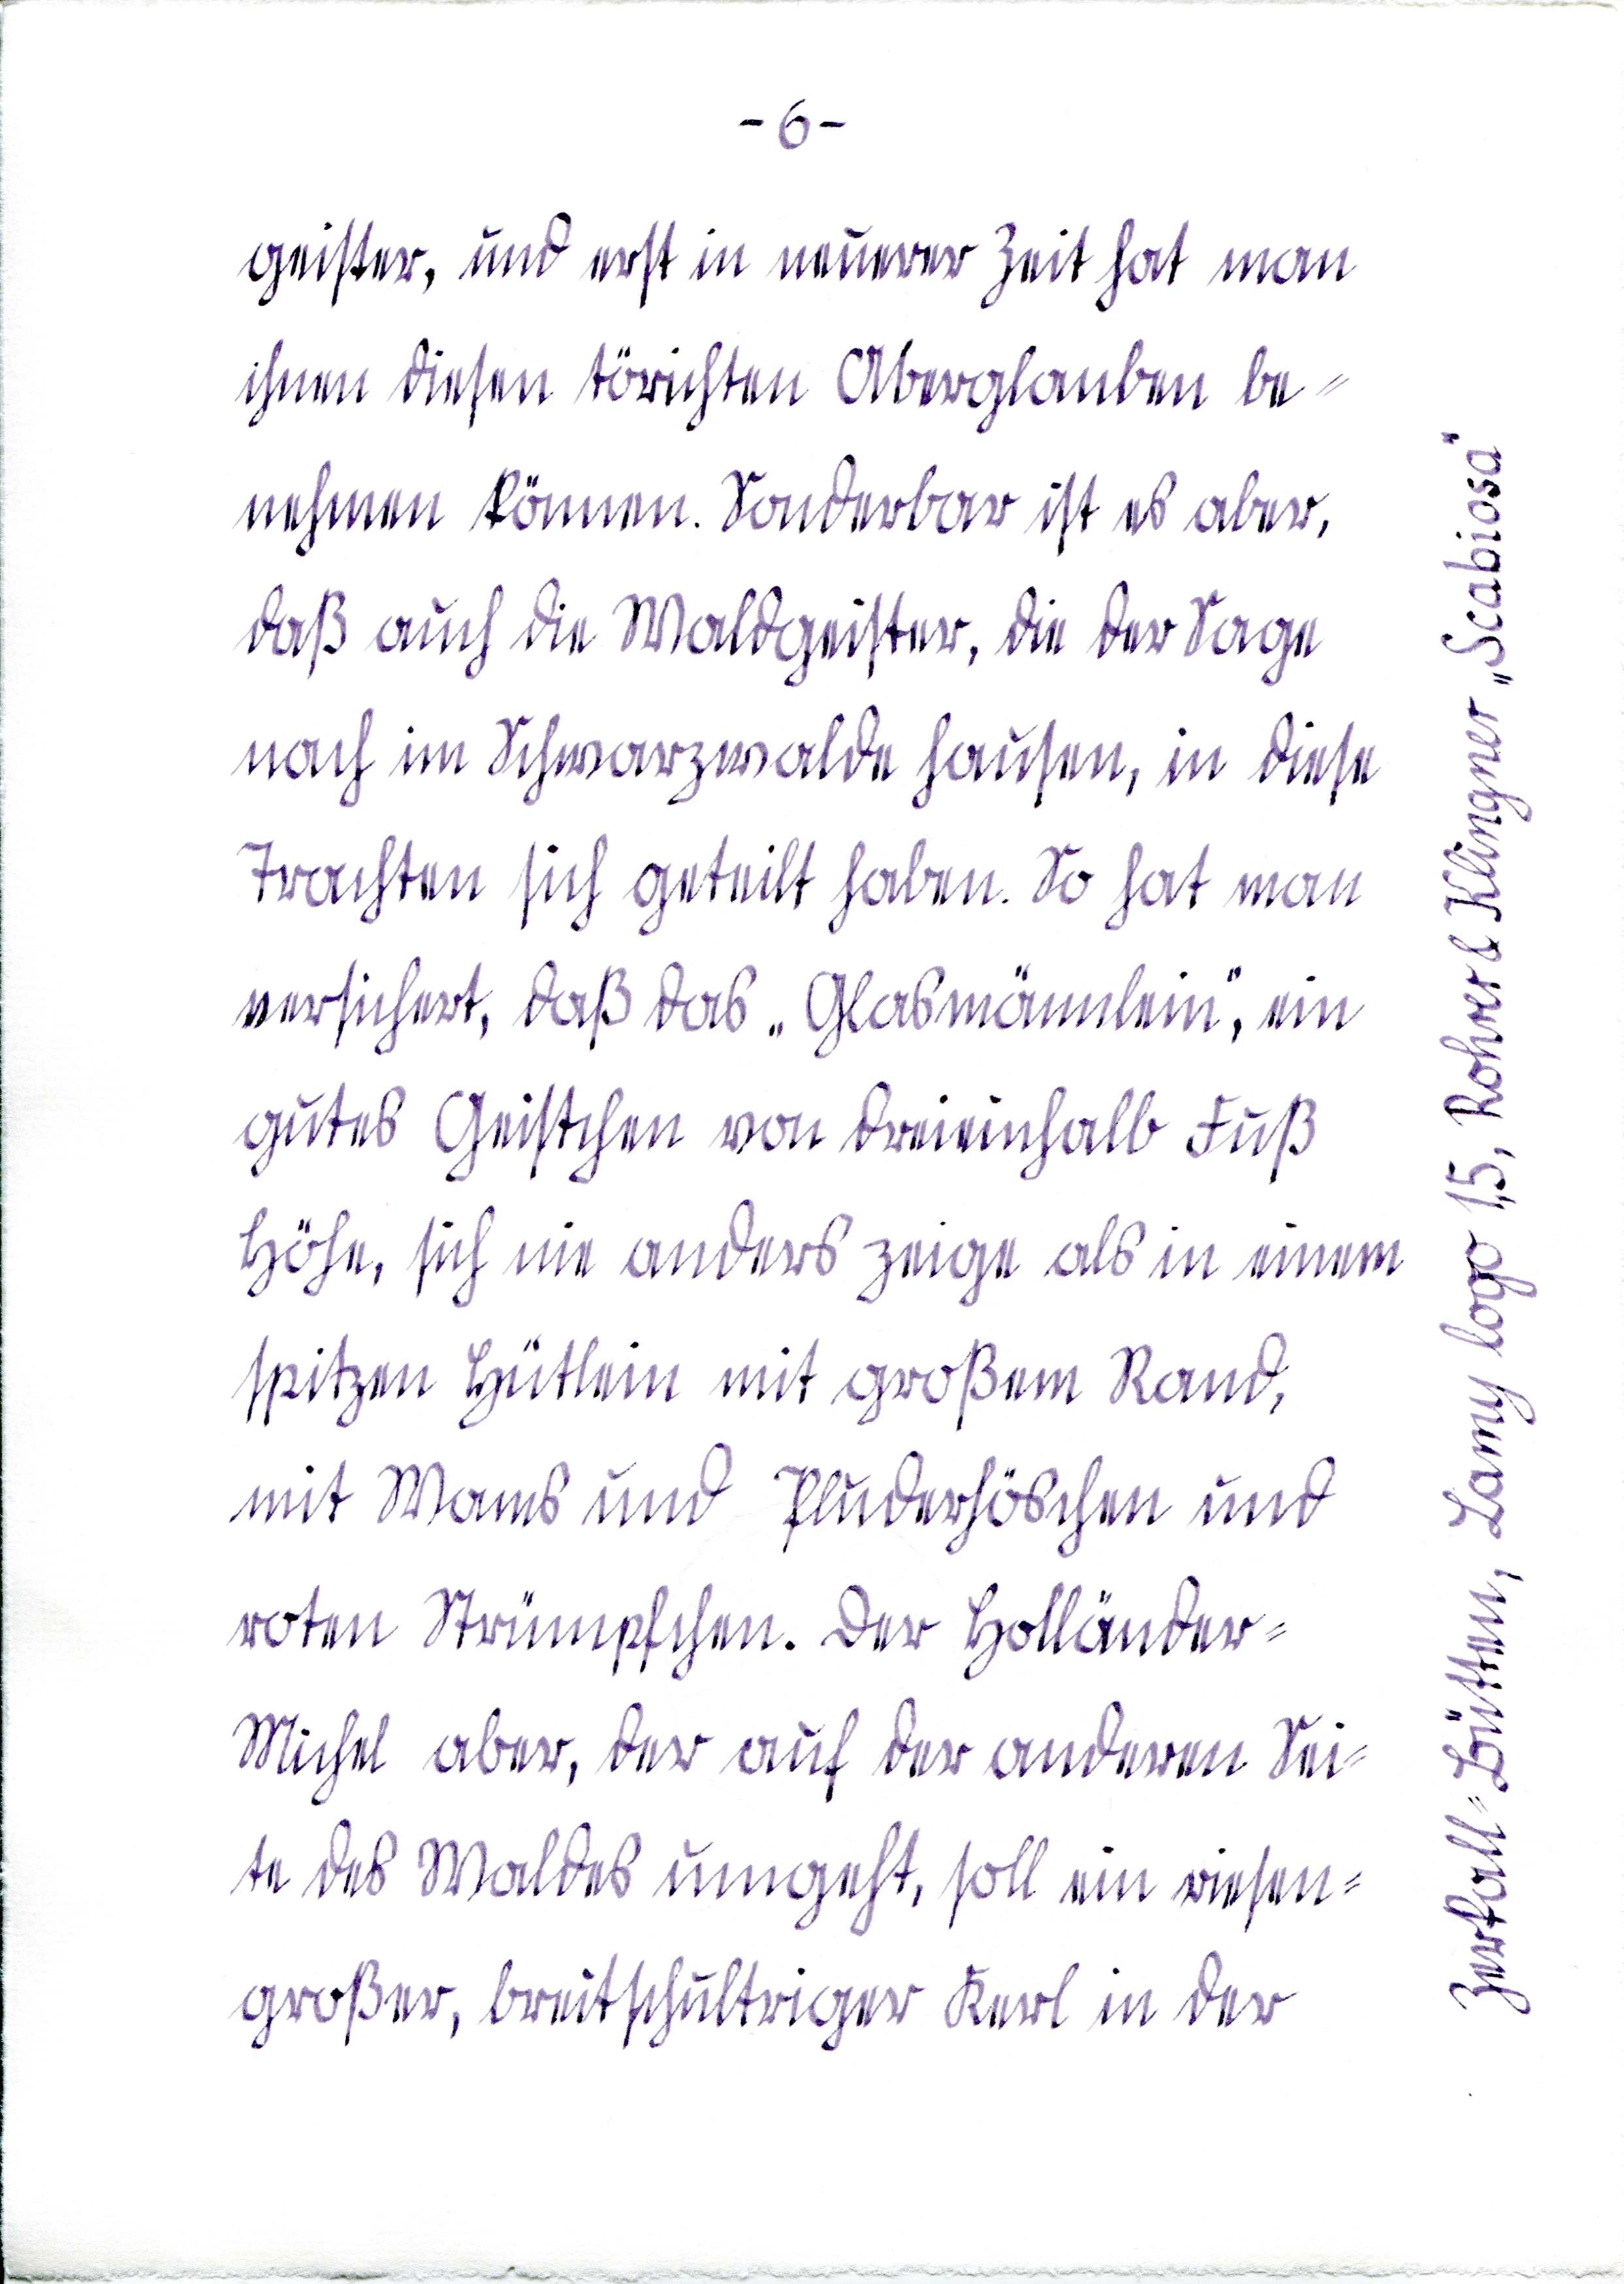 -6-
geister, und erst in neuerer Zeit hat man
ihnen diesen törichten Aberglauben be=
nehmen können. Sonderbar ist es aber,
daß auch die Waldgeister, die der Sage
nach im Schwarzwalde hausen, in diese
Trachten sich geteilt haben. So hat man
versichert, daß das „Glasmännlein“, ein
gutes Geistchen von dreieinhalb Fuß
Höhe, sich nie anders zeige als in einem
spitzen Hütlein mit großem Rand,
mit Wams und Pluderhöschen und
roten Strümpfchen. Der Holländer=
Michel aber, der auf der anderen Sei=
te des Waldes umgeht, soll ein riesen=
großer, breitschultriger Kerl in der
Zerkall=Bütten, Lamy logo 1,5, Rohrer & Klingner „Scabiosa“